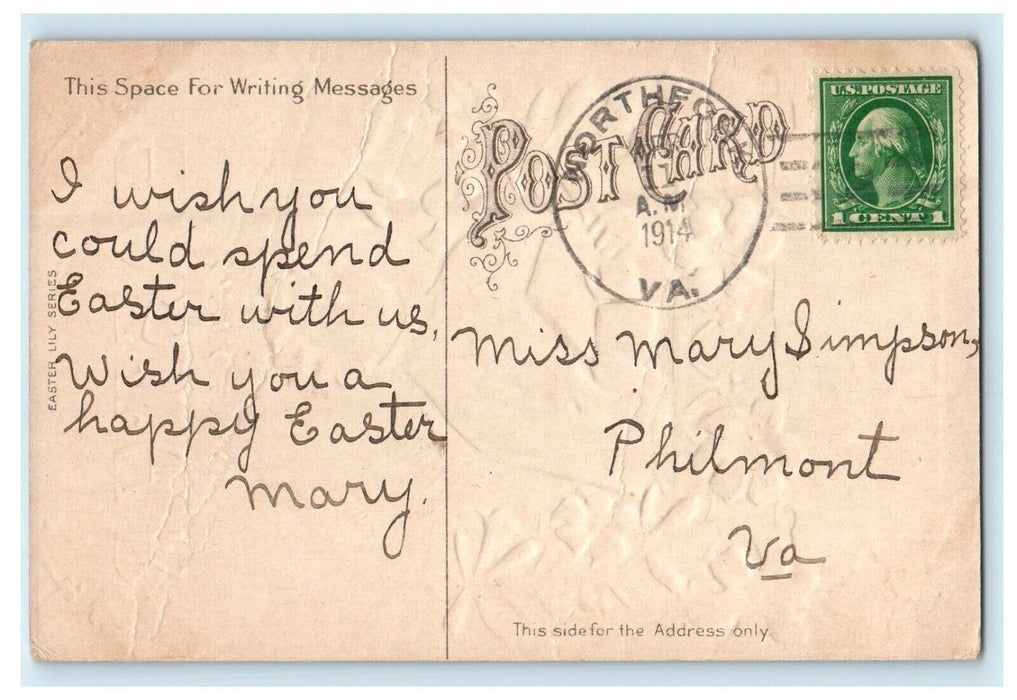 This Space For Writing Messages
I wish you
could spend
Easter with us,
Wish you a
happy Easter
Mary.
EASTER LILY SERIES
POST CARD
A.M.
1914
VA.
U.S. POSTAGE
1 CENT 1
Miss Mary Simpson,
Philmont
Va
This side for the Address only.